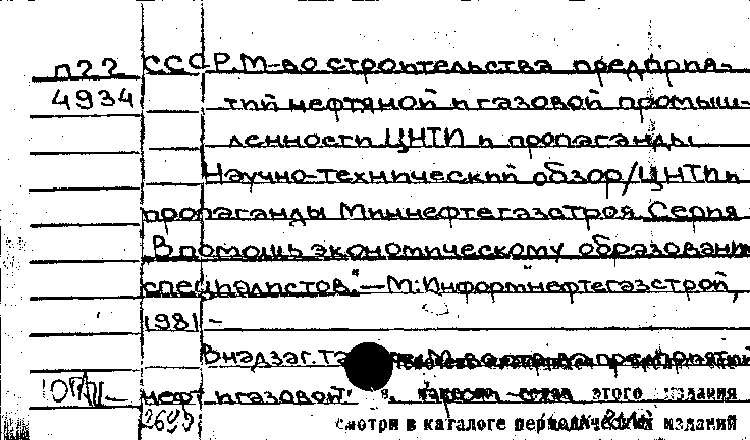 п22 СССР. М-во строительства предприя-
4934 тий нефтяной и газовой промыш-
ленности ЦНТИ и пропаганды
Научно-технический обзор/ЦНТИ и
пропаганды Миннефтегазстроя Серия
"В помощь экономическому образованию
специалистов".—М.: Информнефтегазстрой,
1981 -
В надзаг. М-во предприятий
нефт и газовой этого издания
2695 смотри в каталоге периодических изданий